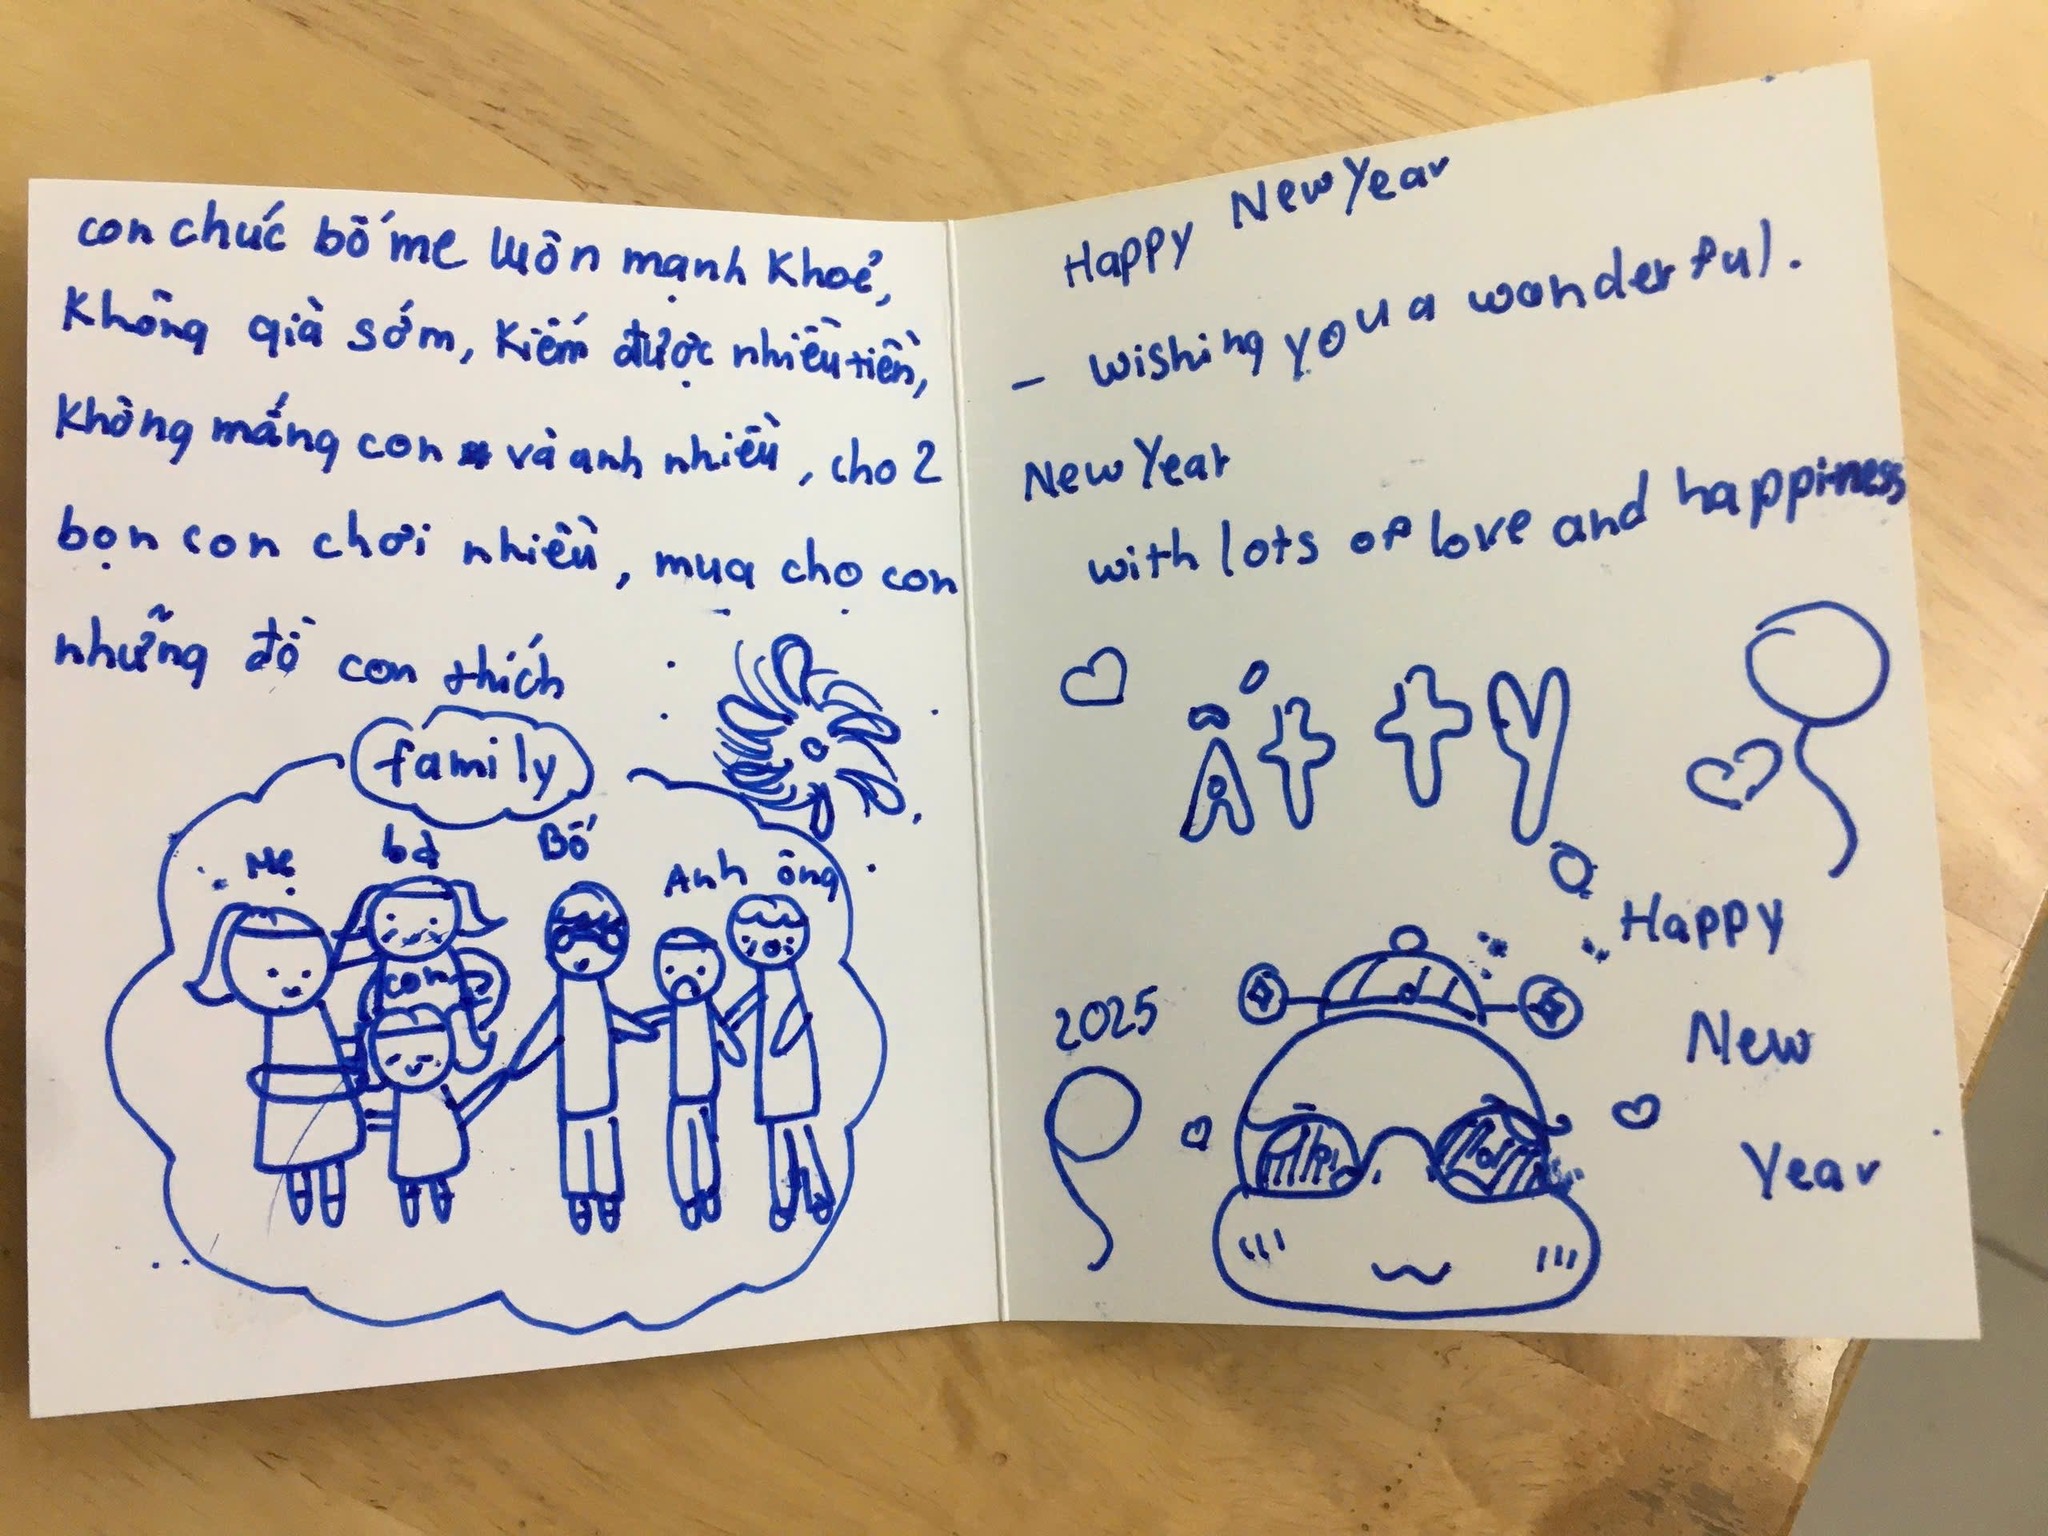 con chúc bố mẹ luôn mạnh khoẻ,
không già sớm, kiếm được nhiều tiền,
không mắng con và anh nhiều, cho 2
bọn con chơi nhiều, mua cho con
những đồ con thích
family
Mẹ
bà
Bố
Anh
ông
con
Happy New Year
- wishing you a wonderful.
New Year
with lots of love and happiness
Ất tỵ
2025
Happy
New
Year